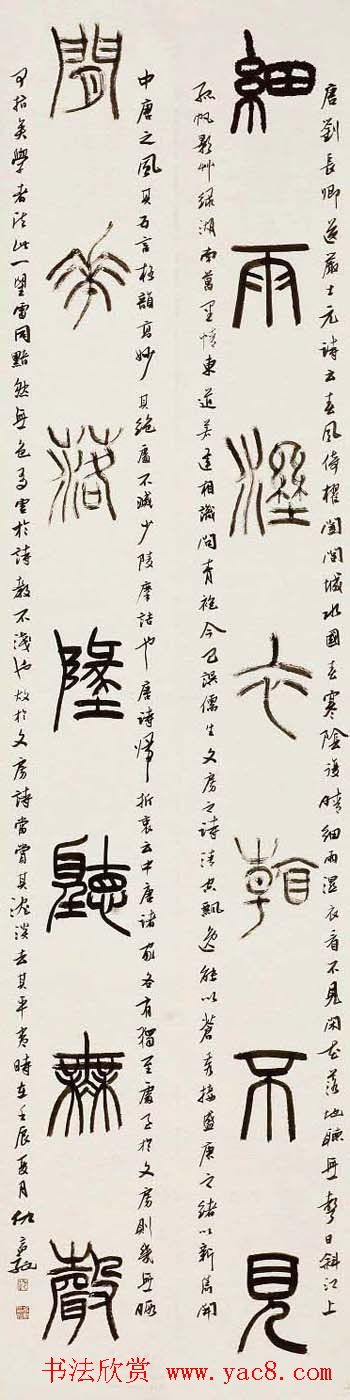 唐劉長卿送嚴士元詩云春風倚棹闔閭城水國春寒陰復晴細雨溼衣看不見閑花落地聽無聲日斜江上
細雨溼衣看不見
孤帆影草綠湖南萬里情東道若逢相識問青袍今已誤儒生文房之詩清空飄逸能以蒼秀接盛唐之緒以新雋開
中唐之風其五言格韻高妙其絕處不減少陵摩詰也唐詩歸折衷云中唐諸家各有獨至處予於文房則幾無瑕
閒花落墬聽無聲
可指矣學者法此一望雷同黯然無色焉害於詩教不淺也故於文房詩當嘗其濃淡去其平 時在壬辰夏月仇高馳
书法欣赏 www.yac8.com